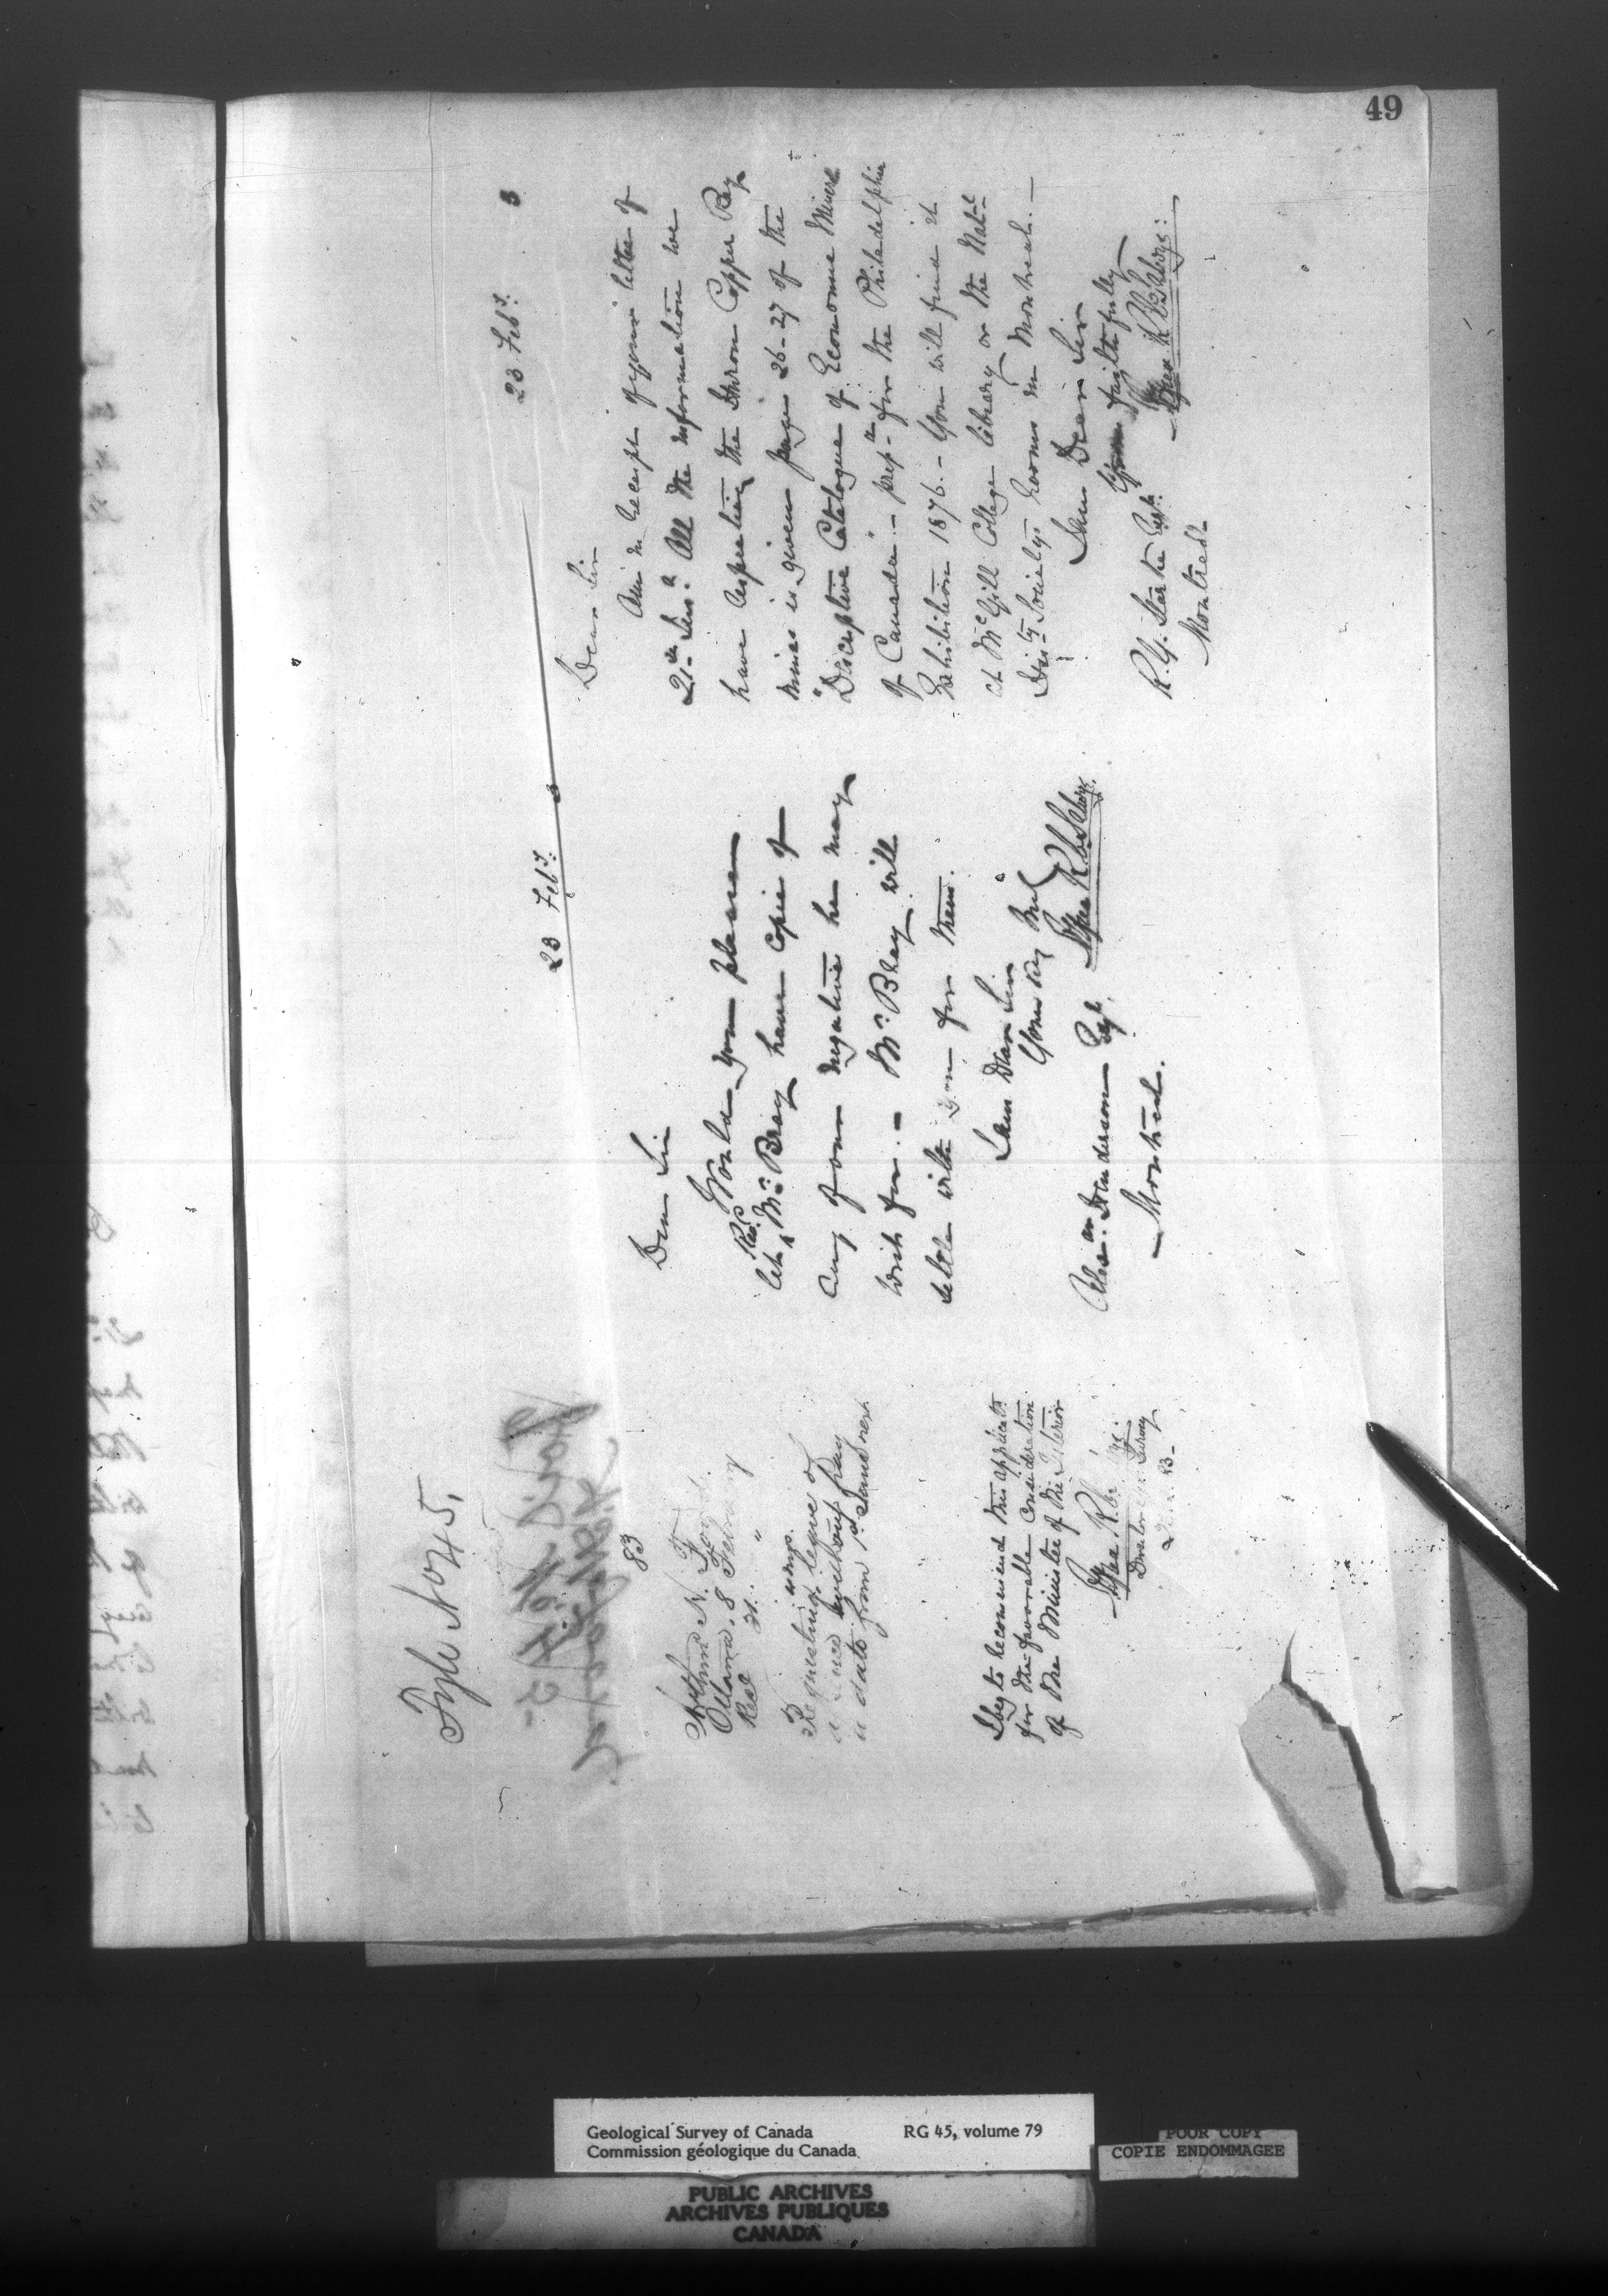 49
Fyle No 45.
83
Arthur N. Ford.
Ottawa. 8 February
Recd 21. "
Requesting leave of
without pay
to date from 1st June next
I beg to recommend this applicatn
for the favorable consideration
of the Minister of the Interior
Director Geol Survey
23 Feby.
Dear Sir
Would you please
let Revd Mr Bray have copies of
any of our negatives he may
wish for. - Mr Bray will
settle with you for them.
I am Dear Sir
Yours very truly
Alfred R. C. Selwyn.
Alexr. Henderson Esqr.
Montreal.
23 Feby. 3
Dear Sir
Am in receipt of your letter of
21st Inst. All the information we
have respecting the Huron Copper Bay
mines is given pages 26-27 of the
"Descriptive Catalogue of Economic Minerls
of Canada" - prepd for the Philadelphia
Exhibition 1876. - You will find it
at McGill College library or the Natl
Histy Society's rooms in Montreal. -
I am Dear Sir
Yours faithfully
Alfred R. C. Selwyn:
R. G. Starke Esqr.
Montreal
Geological Survey of Canada RG 45, volume 79
Commission géologique du Canada
POOR COPY
COPIE ENDOMMAGEE
PUBLIC ARCHIVES
ARCHIVES PUBLIQUES
CANADA